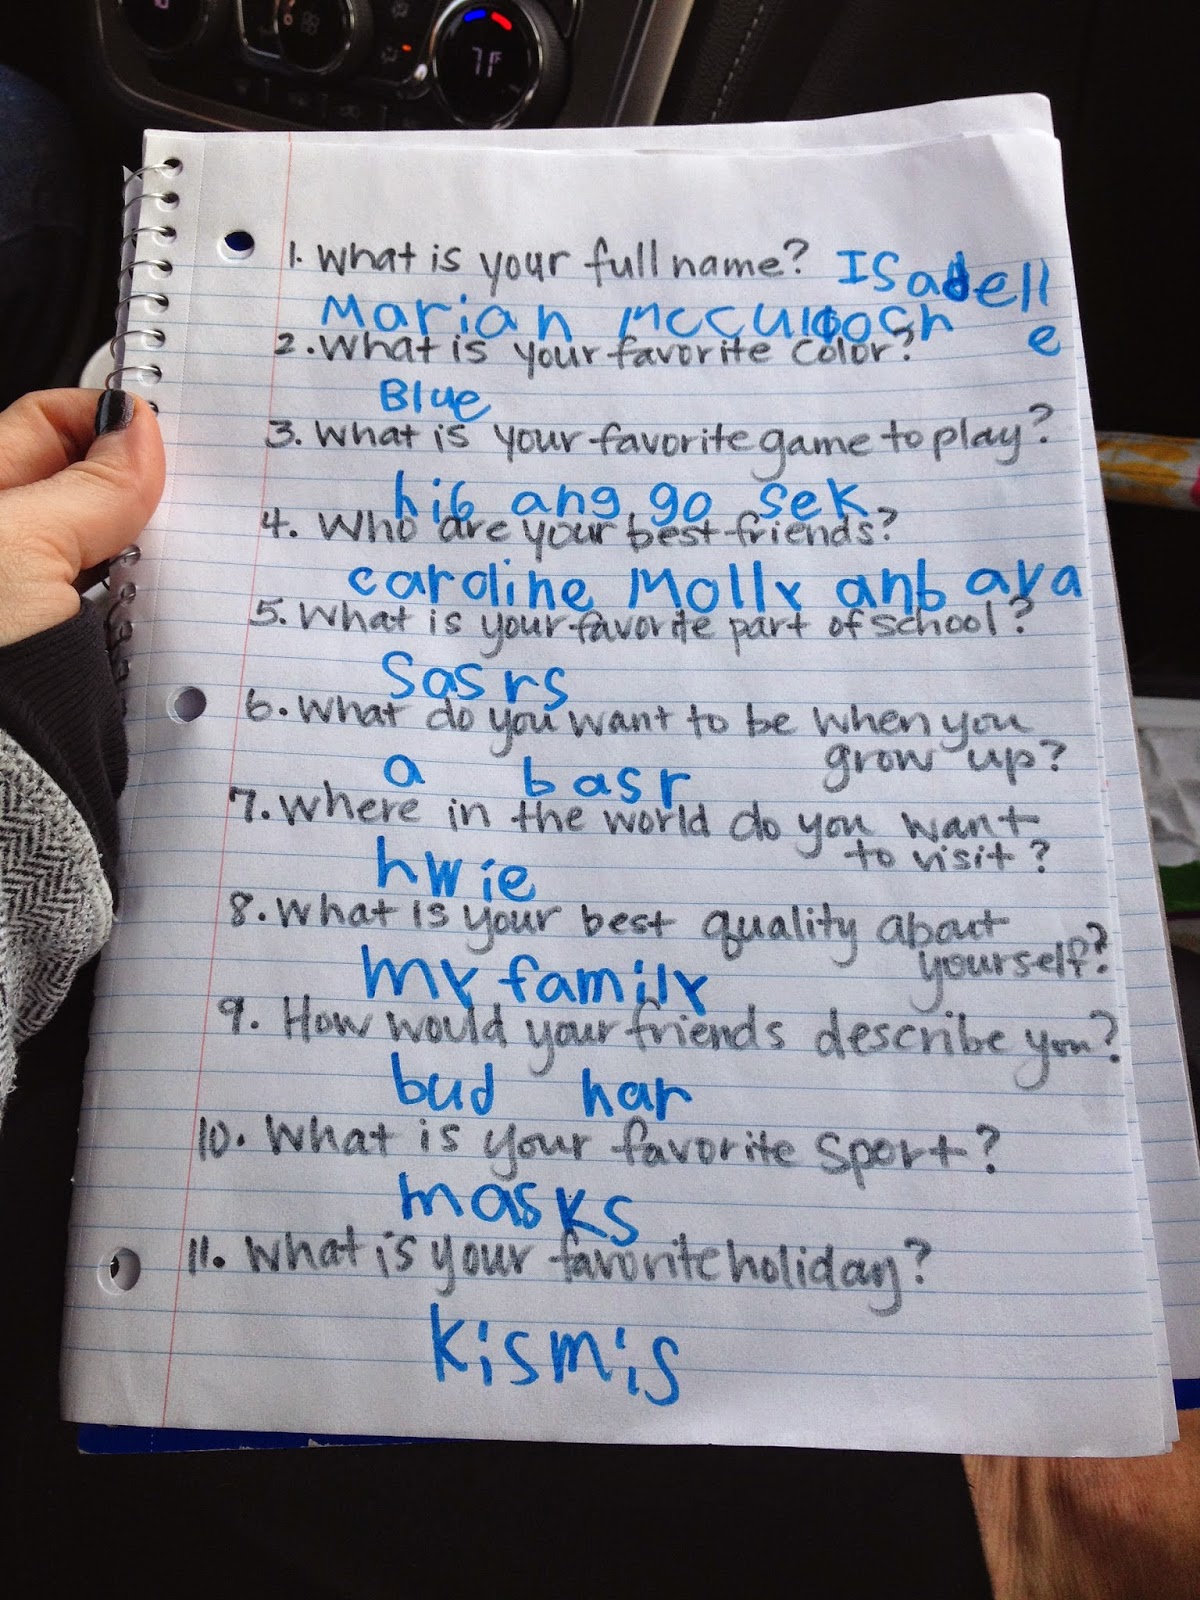 1. What is your full name? Isabell
e
Mariah McCulloch
2. What is your favorite color?
Blue
3. What is your favorite game to play?
hib ang go sek
4. Who are your best friends?
caroline Molly anb ava
5. What is your favorite part of school?
Sasrs
6. What do you want to be when you
grow up?
a basr
7. Where in the world do you want
to visit?
hwie
8. What is your best quality about
yourself?
my family
9. How would your friends describe you?
bud har
10. What is your favorite sport?
masks
11. What is your favorite holiday?
kismis